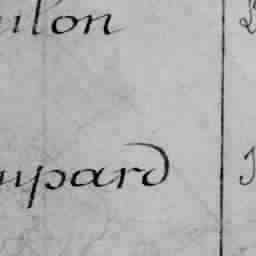 ulon
upard